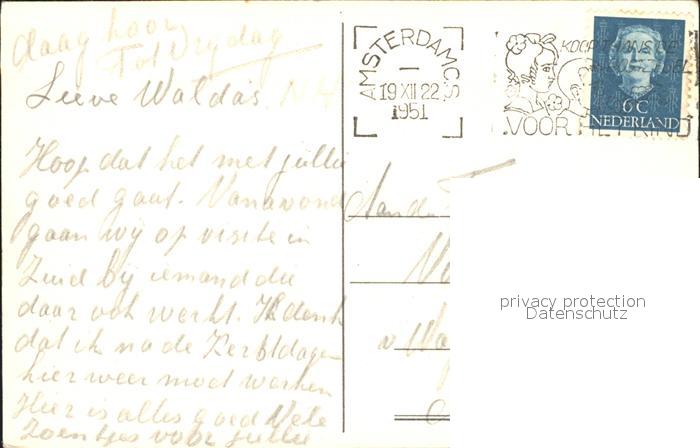 daag hoor
Tot Vrijdag
Lieve Waldas
Hoop dat het met jullie
goed gaat. Vanavond
gaan wij op visite in
Zuid bij iemand die
daar ook werkt. Ik denk
dat ik na de Kerstdagen
hier weer moet werken
Hier is alles goed Vele
zoentjes voor jullie
AMSTERDAM CS
19 XII 22
1951
VOOR HET KIND
6 C
NEDERLAND
Aan de
privacy protection
Datenschutz